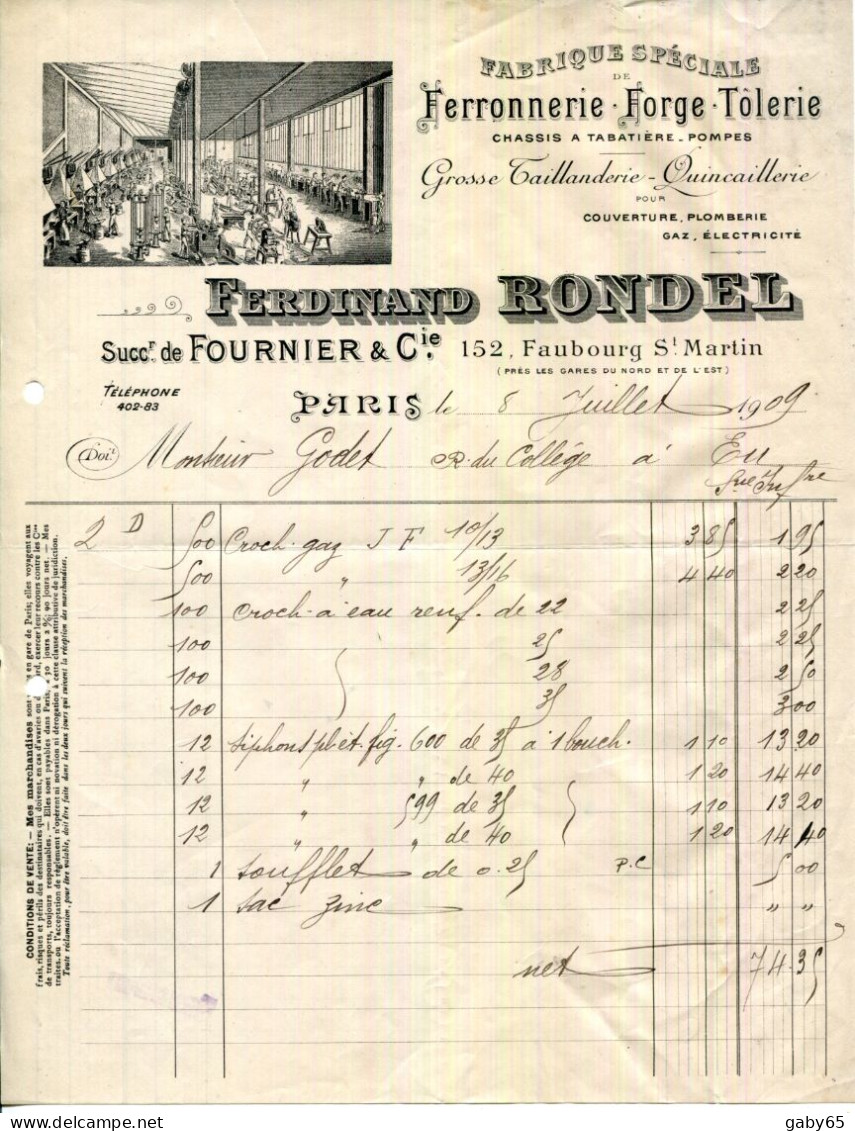 FABRIQUE SPÉCIALE
DE
Ferronnerie · Forge · Tôlerie
CHASSIS A TABATIÈRE - POMPES
Grosse Taillanderie - Quincaillerie
POUR
COUVERTURE, PLOMBERIE
GAZ, ÉLECTRICITÉ
FERDINAND RONDEL
Succr. de FOURNIER & Cie. 152, Faubourg St. Martin
(PRÈS LES GARES DU NORD ET DE L'EST)
TÉLÉPHONE
402-83
PARIS, le 8 Juillet 1909
Doit Monsieur Godet R. du Collège à Eu
Sne Infre
2 D 500 Croch. gaz J F 10/13 3 85 1 95
500 " 13/16 4 40 2 20
100 Croch. à eau renf. de 22 2 25
100 25 2 25
100 28 2 50
100 35 3 00
12 siphons pl. et. fig. 600 de 35 à 1 bouch. 1 10 13 20
12 " " de 40 1 20 14 40
12 " 599 de 35 1 10 13 20
12 " " de 40 1 20 14 40
1 soufflet de 0.25 P.C 5 00
1 sac zinc " "
net 74.35
CONDITIONS DE VENTE: — Mes marchandises sont en gare de Paris; elles voyagent aux
frais, risques et périls des destinataires qui doivent, en cas d'avaries ou de retard, exercer leur recours contre les Cies
de transports, toujours responsables. — Elles sont payables dans Paris, à 30 jours 2 %; 90 jours net. — Mes
traites, ou l'acceptation de règlement n'opèrent ni novation ni dérogation à cette clause attributive de juridiction.
Toute réclamation, pour être valable, doit être faite dans les deux jours qui suivent la réception des marchandises.
www.delcampe.net
gaby65